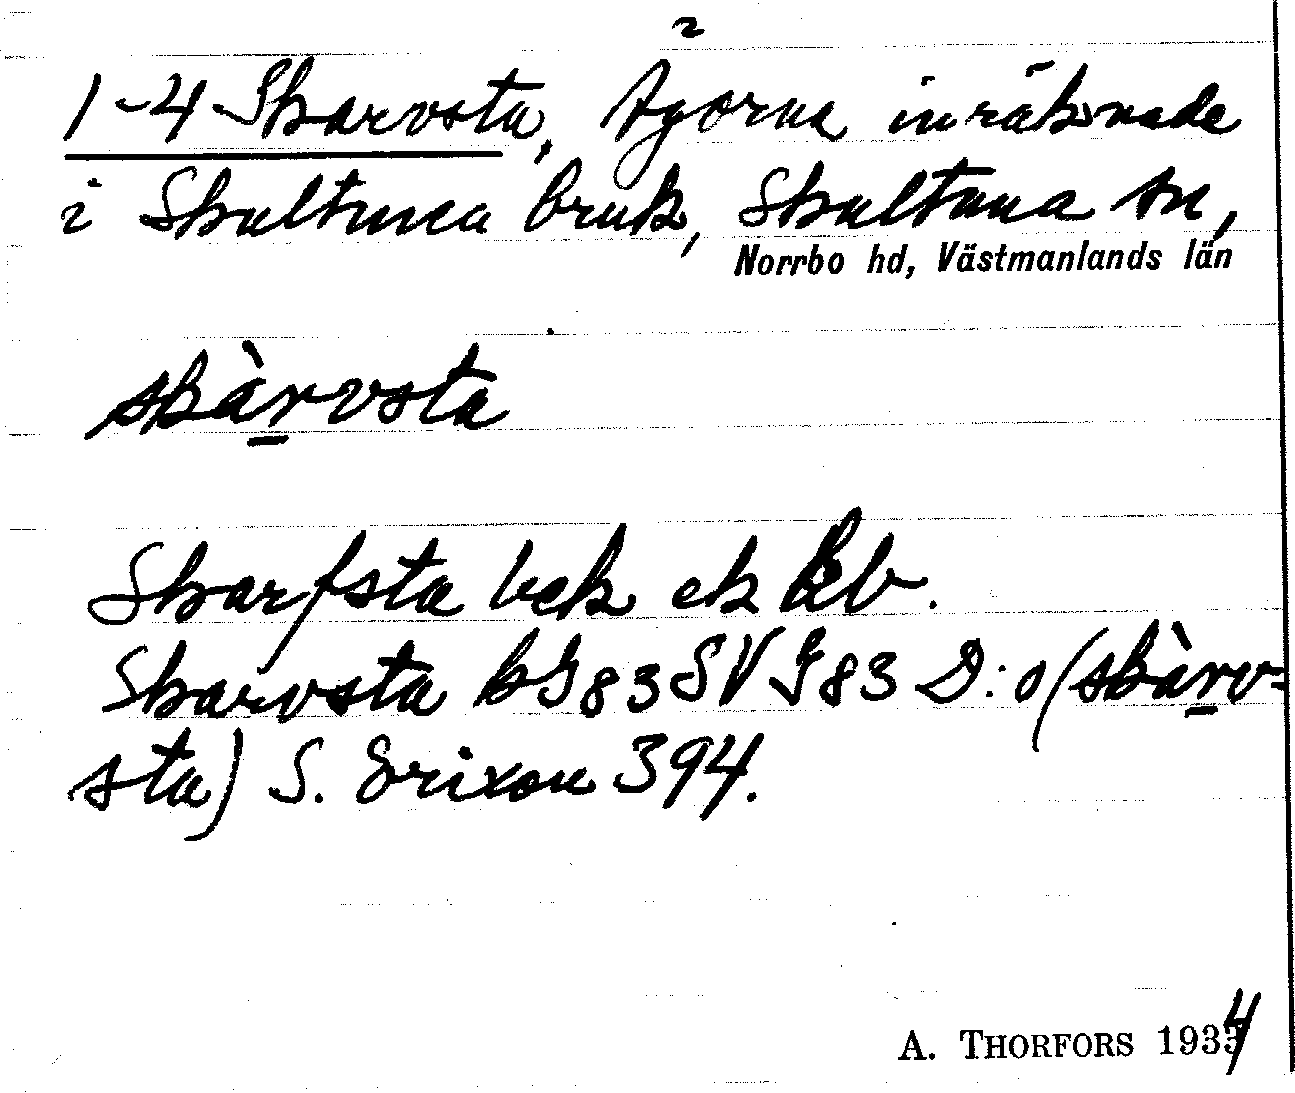 1-4 Skarvsta, Ägorna inräknade
i Skultuna bruk, Skultuna sn,
Norrbo hd, Västmanlands län
skàrvsta
Skarfsta bek ek kb.
Skarvsta bG83SVG83 D:o (skàrv-
sta) S. Erixon 394.
A. THORFORS 1934